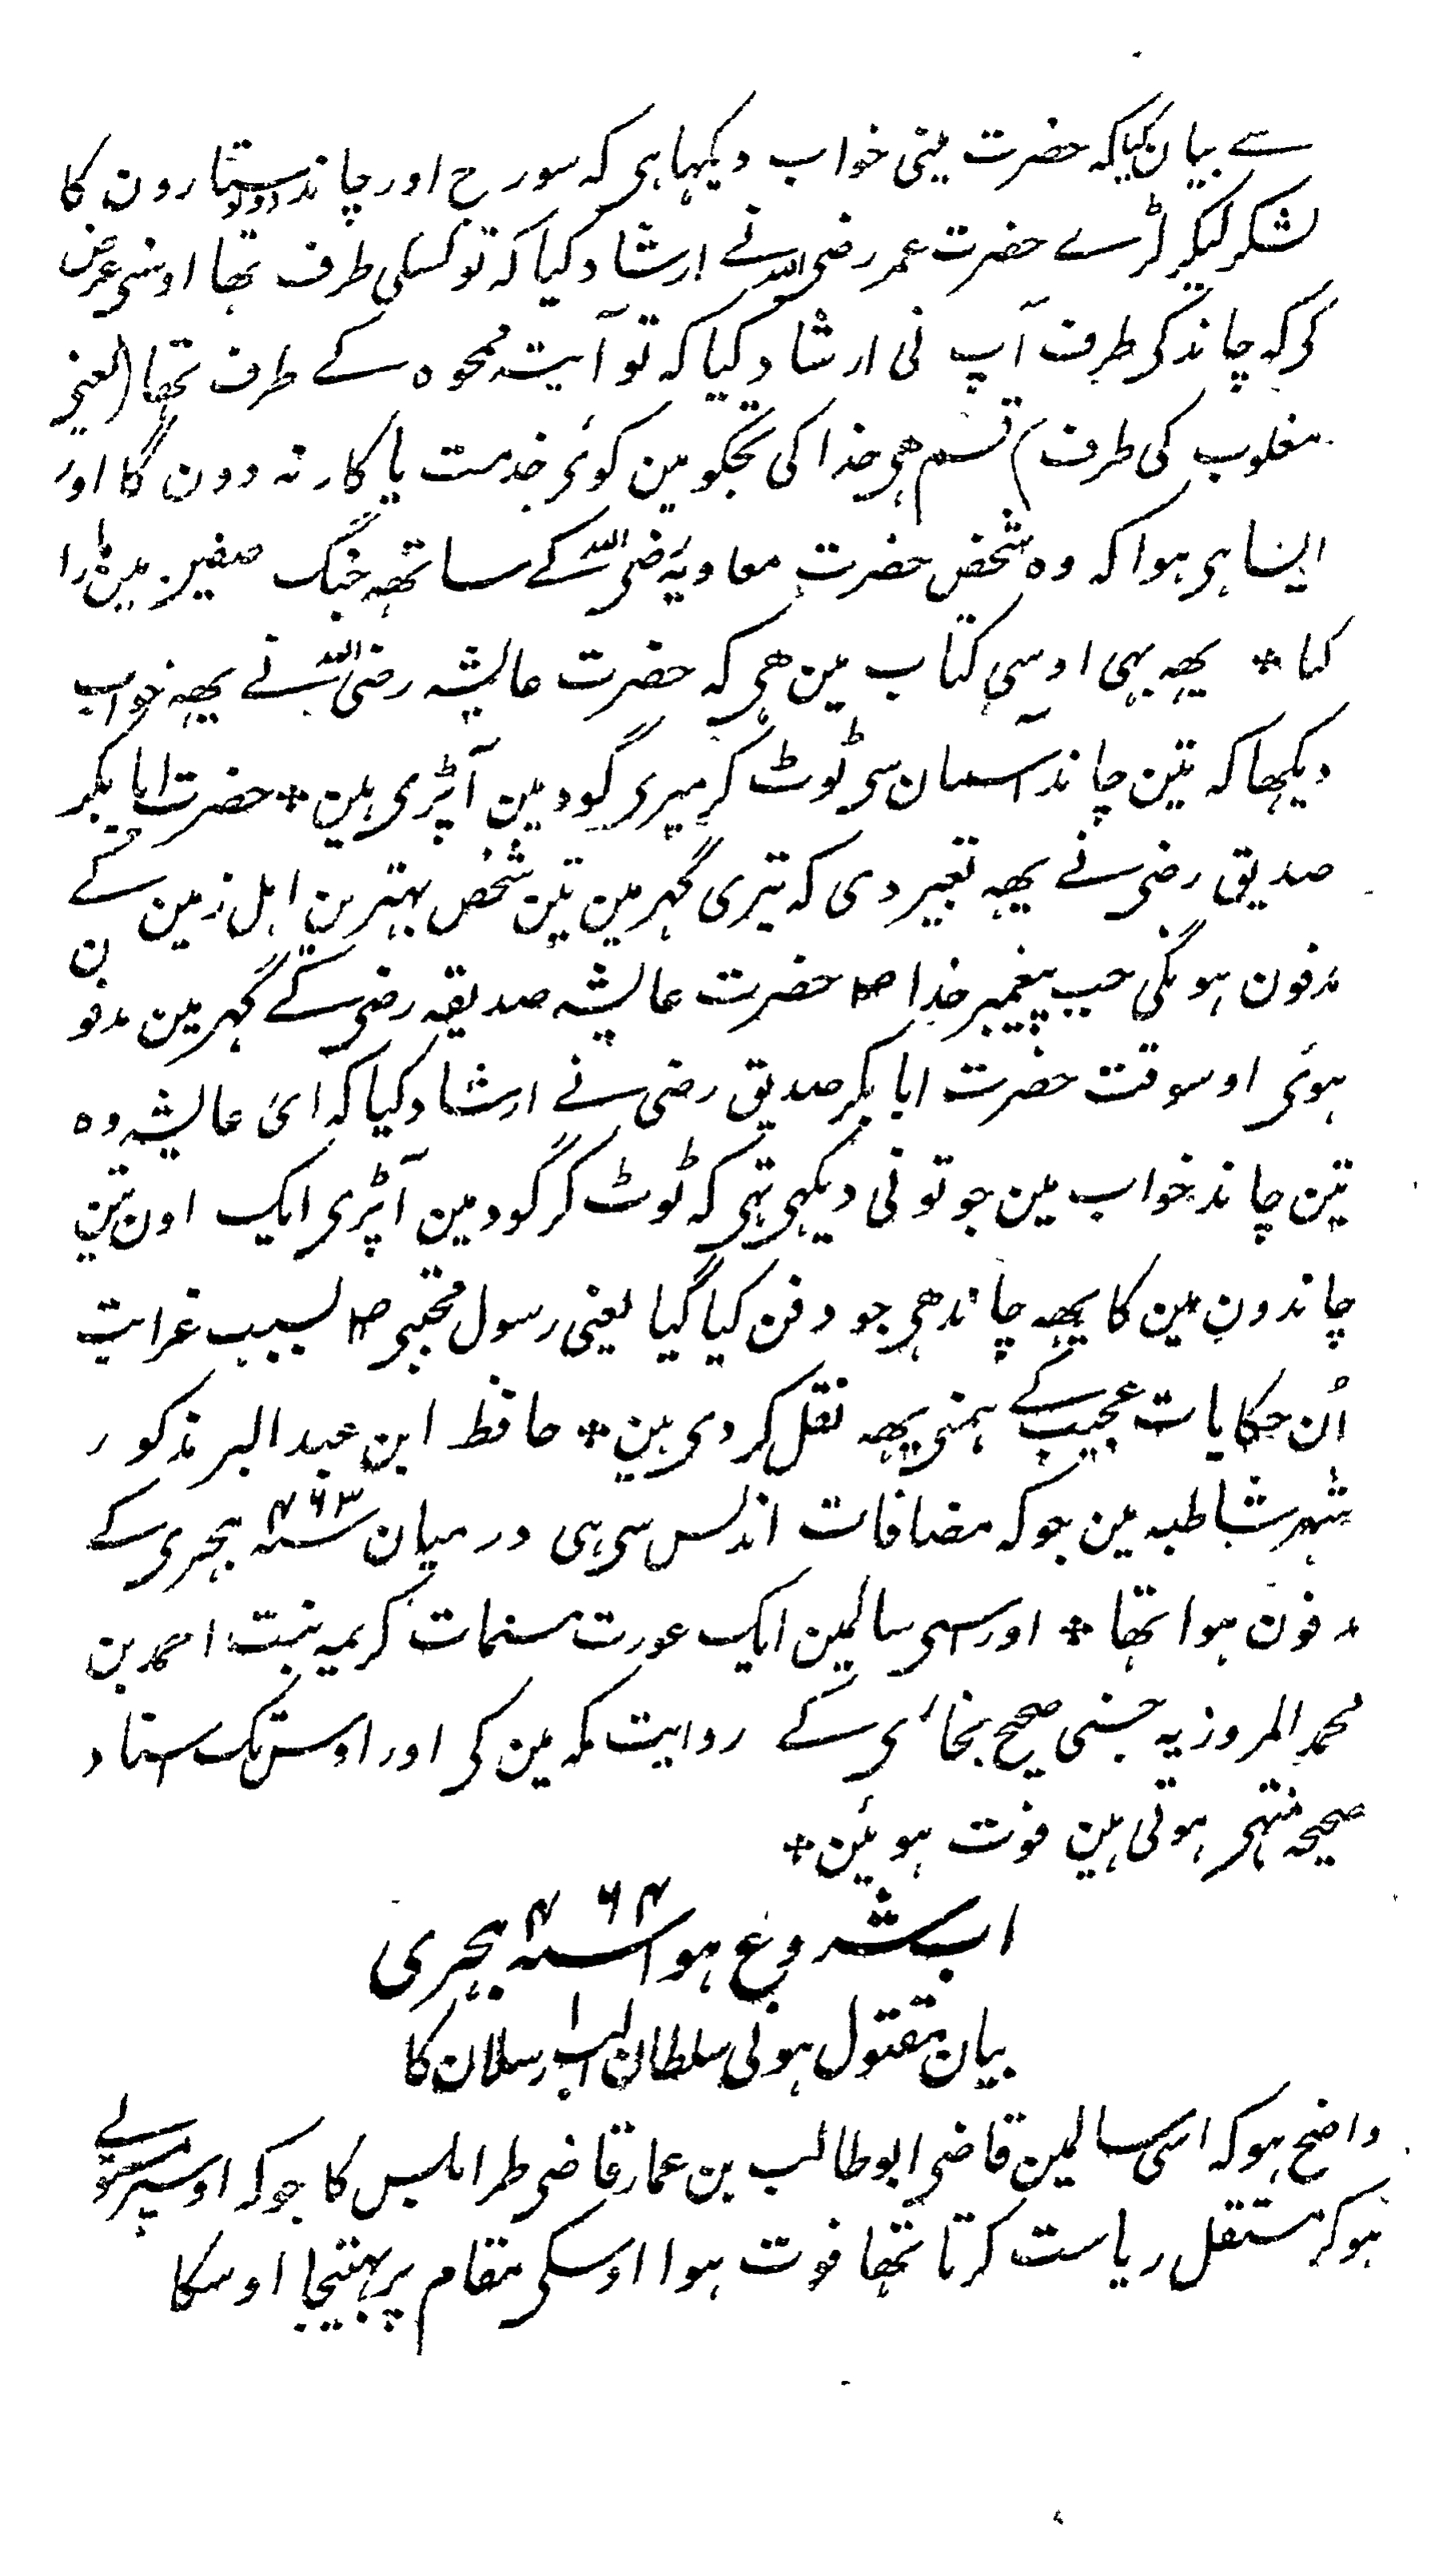 سے بیان کیا کہ حضرت مینی خواب دیکہا ہی کہ سورج اور چاند دونو ستارون کا
لشکر لیکر لڑے حضرت عمر رضی اللہ نے ارشاد کیا کہ تو کسکی طرف تھا اوسنی عرض
کی کہ چاند کی طرف آپ نی ارشاد کیا کہ تو آیت ممحوہ کے طرف تھا (یعنی
مغلوب کی طرف) قسم ھی خدا کی تجکو مین کوئی خدمت یا کار نہ دون گا اور
ایسا ہی ہوا کہ وہ شخص حضرت معاویہ رضی اللہ کے ساتھہ جنگ صفین مین مارا
گیا * یھہ بہی اوسی کتاب مین ھی کہ حضرت عایشہ رضی اللہ نے یھہ خواب
دیکھا کہ تین چاند آسمان سی ٹوٹ کر میری گود مین آپڑی ہین * حضرت ابابکر
صدیق رضی نے یھہ تعبیر دی کہ تیری گہر مین تین شخص بہترین اہل زمین کے
مدفون ہونگی جب پیغمبر خدا صلعم حضرت عایشہ صدیقہ رضی کے گہر مین مدفون
ہوئی اوسوقت حضرت ابابکر صدیق رضی نے ارشاد کیا کہ ائ عایشہ وہ
تین چاند خواب مین جو تونی دیکہی تہی کہ ٹوٹ کر گود مین آپڑی ایک اون تین
چاندون مین کا یھہ چاند ھی جو دفن کیا گیا یعنی رسول مجتبی صلعم بسبب غرابت
اُن حکایات عجیب کے ہمنی یھہ نقل کر دی ہین * حافظ ابن عبد البر مذکور
شہر شاطبہ مین جو کہ مضافات اندلس سی ہی درمیان سنہ ۴۶۳ ہجری کے
مدفون ہوا تھا * اور اسی سالمین ایک عورت مسمات کریمہ بنت احمد بن
محمد المروزیہ جسنی صحیح بخاری کے روایت مکہ مین کی اور اوس تک اسناد
صحیحہ منتہی ہوتی ہین فوت ہوئین *
اب شروع ہوا سنہ ۴۶۴ ہجری
بیان مقتول ہونی سلطان الب ارسلان کا
واضح ہو کہ اسی سالمین قاضی ابو طالب بن عمار قاضی طرابلس کا جو کہ اوسپر مستولے
ہو کر مستقل ریاست کرتا تھا فوت ہوا اوسکی مقام پر بہتیجا اوسکا